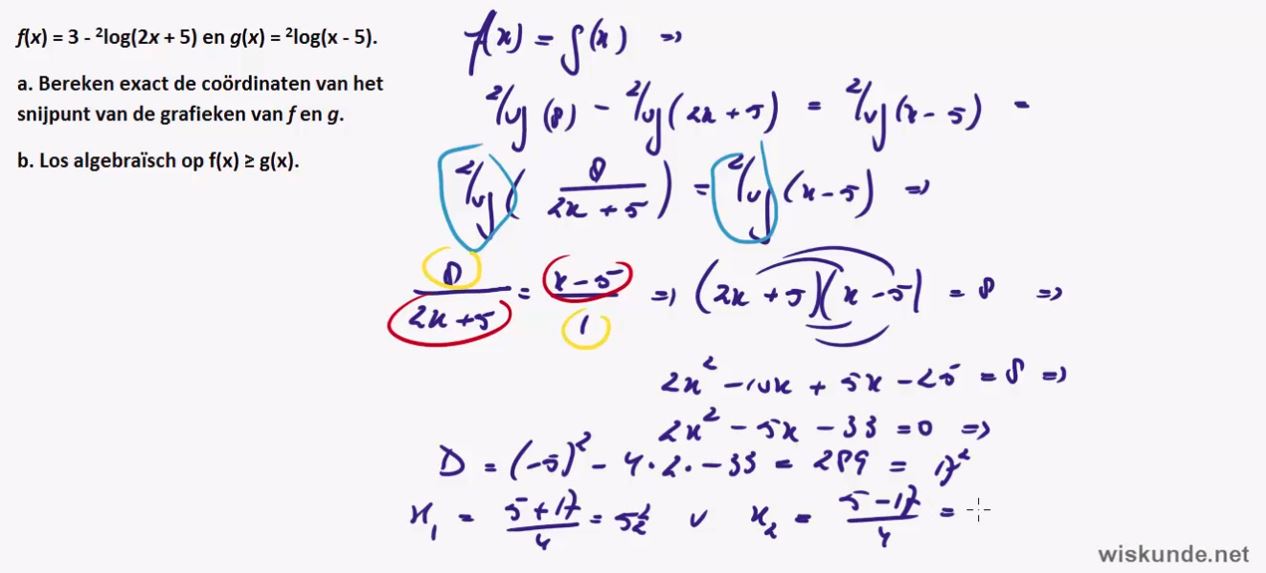 f(x) = 3 - ²log(2x + 5) en g(x) = ²log(x - 5).
a. Bereken exact de coördinaten van het
snijpunt van de grafieken van f en g.
b. Los algebraïsch op f(x) ≥ g(x).
f(x) = g(x) ⇒
²log(8) - ²log(2x + 5) = ²log(x - 5) =
²log(8/(2x + 5)) = ²log(x - 5) ⇒
8/(2x + 5) = (x - 5)/1 ⇒ (2x + 5)(x - 5) = 8 ⇒
2x² - 10x + 5x - 25 = 8 ⇒
2x² - 5x - 33 = 0 ⇒
D = (-5)² - 4 · 2 · -33 = 289 = 17²
x₁ = (5 + 17)/4 = 5½ ∨ x₂ = (5 - 17)/4 =
wiskunde.net